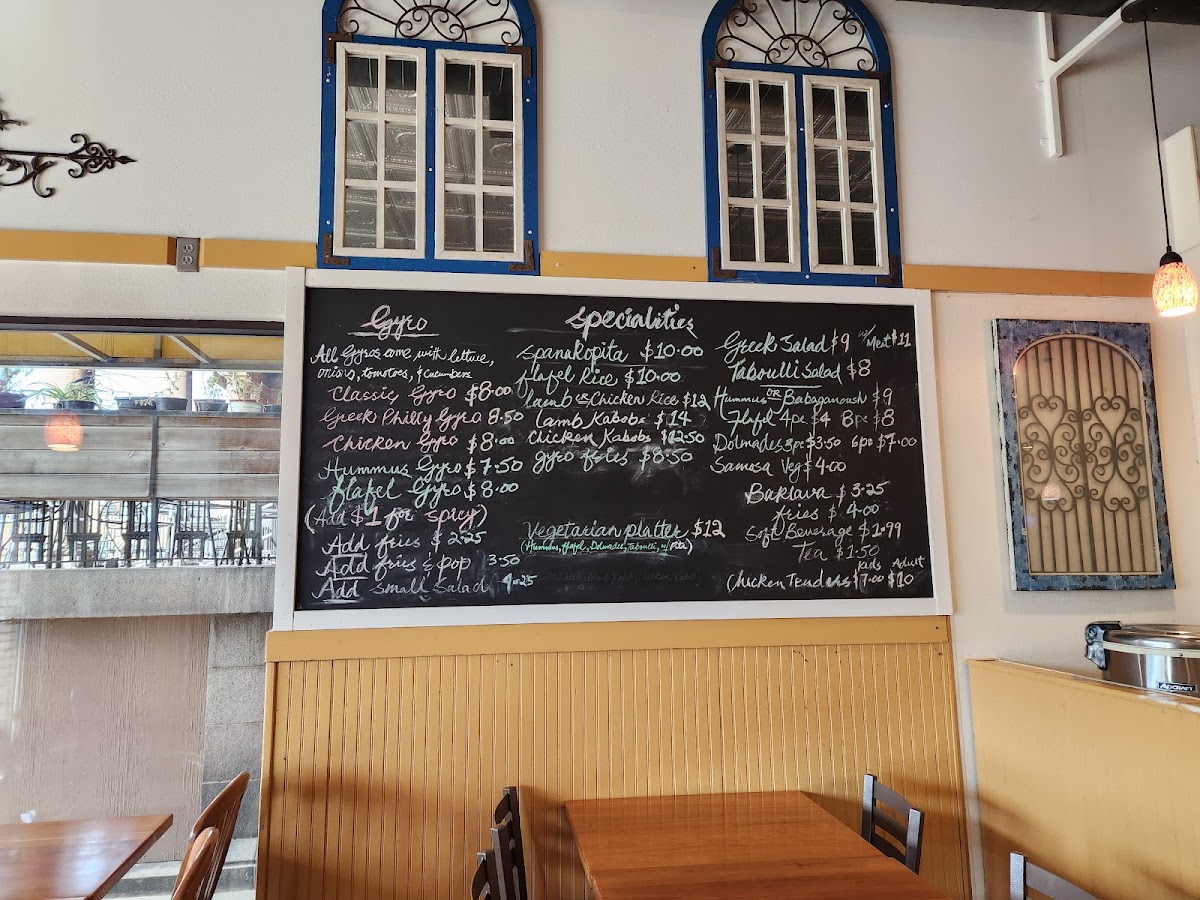 Gyro
All Gyros come with lettuce,
onions, tomatoes, & cucumbers
Classic Gyro $8.00
Greek Philly Gyro 8.50
Chicken Gyro $8.00
Hummus Gyro $7.50
flafel Gyro $8.00
(Add $1 for spicy)
Add fries $2.25
Add fries & pop 3.50
Add small Salad 4.25
Specialities
Spanakopita $10.00
flafel Rice $10.00
Lamb or Chicken Rice $12
Lamb Kabobs $14
Chicken Kabobs $12.50
gyro fries $8.50
Vegetarian platter $12
(Hummus, flafel, Dolmades, Taboulli, w/ Pita)
Greek Salad $9 w/ Meat $11
Taboulli Salad $8
Hummus OR Babaganoush $9
flafel 4pc $4 8pc $8
Dolmades 3pc $3.50 6pc $7.00
Samosa Veg $4.00
Baklava $3.25
fries $4.00
Soft Beverage $1.99
Tea $1.50
Kids Adult
Chicken Tenders $7.00 $10
ADCRAFT